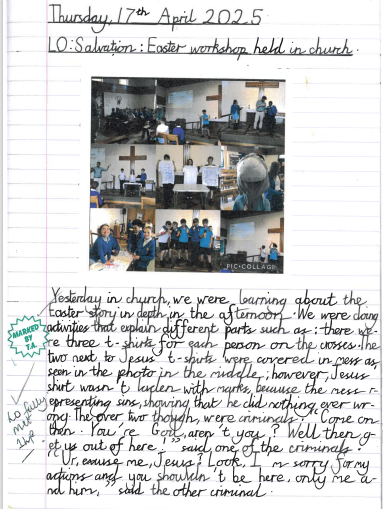 Thursday, 17th April 2025
LO: Salvation: Easter workshop held in church.
PIC•COLLAGE
Yesterday in church, we were learning about the
Easter story in depth in the afternoon. We were doing
activities that explain different parts such as: there we-
re three t-shirts for each person on the crosses. The
two next to Jesus' t-shirts were covered in mess as,
seen in the photo in the middle; however, Jesus'
shirt wasn't laden with marks, because the mess r-
epresenting sins, showing that he did nothing ever wr-
ong. The over two though, were criminals. "Come on
then. You're God, aren't you? Well then g-
et us out of here!" said one of the criminals.
"Ur, excuse me, Jesus? Look, I'm sorry for my
actions and you shouldn't be here, only me a-
nd him," said the other criminal.
MARKED
BY
T.A.
LO fully
met